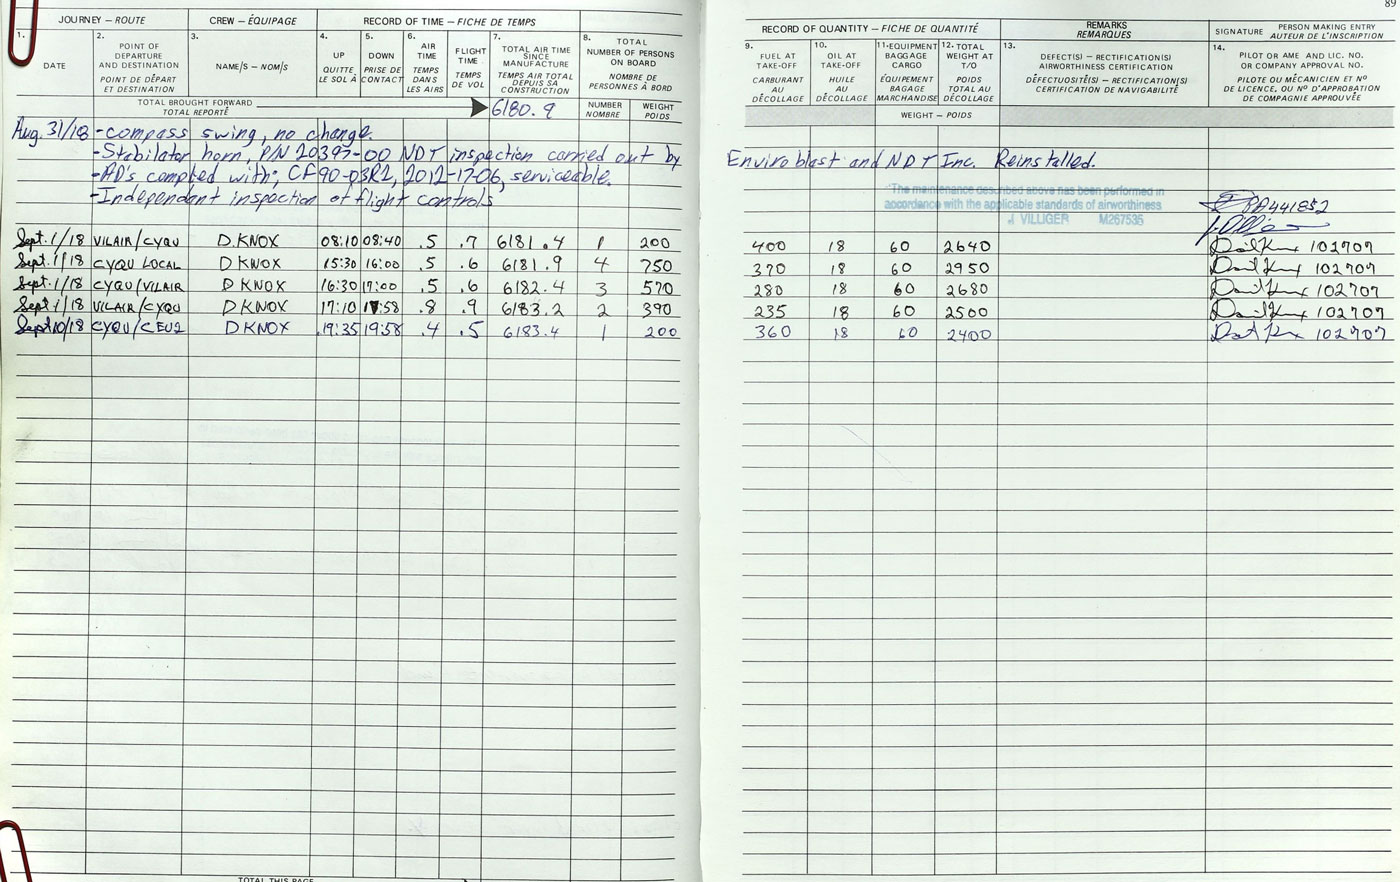 89
JOURNEY – ROUTE CREW – ÉQUIPAGE RECORD OF TIME – FICHE DE TEMPS
1. DATE
2. POINT OF DEPARTURE AND DESTINATION POINT DE DÉPART ET DESTINATION
3. NAME/S – NOM/S
4. UP QUITTE LE SOL À
5. DOWN PRISE DE CONTACT
6. AIR TIME TEMPS DANS LES AIRS
FLIGHT TIME TEMPS DE VOL
7. TOTAL AIR TIME SINCE MANUFACTURE TEMPS AIR TOTAL DEPUIS SA CONSTRUCTION
8. TOTAL NUMBER OF PERSONS ON BOARD NOMBRE DE PERSONNES À BORD
RECORD OF QUANTITY – FICHE DE QUANTITÉ REMARKS REMARQUES SIGNATURE PERSON MAKING ENTRY AUTEUR DE L'INSCRIPTION
9. FUEL AT TAKE-OFF CARBURANT AU DÉCOLLAGE
10. OIL AT TAKE-OFF HUILE AU DÉCOLLAGE
11-EQUIPMENT BAGGAGE CARGO ÉQUIPEMENT BAGAGE MARCHANDISE
12-TOTAL WEIGHT AT T/O POIDS TOTAL AU DÉCOLLAGE
13. DEFECT(S) – RECTIFICATION(S) AIRWORTHINESS CERTIFICATION DÉFECTUOSITÉ(S) – RECTIFICATION(S) CERTIFICATION DE NAVIGABILITÉ
14. PILOT OR AME AND LIC. NO. OR COMPANY APPROVAL NO. PILOTE OU MÉCANICIEN ET Nº DE LICENCE, OU Nº D'APPROBATION DE COMPAGNIE APPROUVÉE
TOTAL BROUGHT FORWARD TOTAL REPORTÉ 6180.9 NUMBER NOMBRE WEIGHT POIDS WEIGHT – POIDS
Aug. 31/18 -compass swing, no change.
-Stabilator horn, P/N 20397-00 NDT inspection carried out by Enviroblast and NDT Inc. Reinstalled.
-AD's complied with; CF90-03R2, 2012-17-06, serviceable.
-Independant inspection of flight controls
"The maintenance described above has been performed in
accordance with the applicable standards of airworthiness
J. VILLIGER M267535
PA441852
Sept. 1/18 VILAIR/CYQU D. KNOX 08:10 08:40 .5 .7 6181.4 1 200 400 18 60 2640 102707
Sept. 1/18 CYQU LOCAL D KNOX 15:30 16:00 .5 .6 6181.9 4 750 370 18 60 2950 102707
Sept. 1/18 CYQU/VILAIR D KNOX 16:30 17:00 .5 .6 6182.4 3 570 280 18 60 2680 102707
Sept 1/18 VILAIR/CYQU D KNOX 17:10 17:58 .8 .9 6183.2 2 390 235 18 60 2500 102707
Sept 10/18 CYQU/CEU2 D KNOX 19:35 19:58 .4 .5 6183.4 1 200 360 18 60 2400 102707
TOTAL THIS PAGE